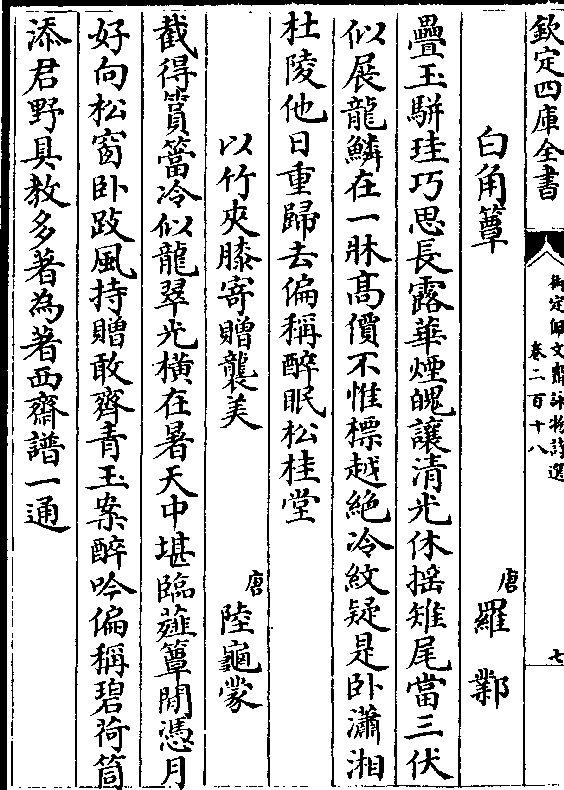 欽定四庫全書
御定佩文齋詠物詩選
卷二百十八
七
白角簟
唐 羅鄴
疊玉駢珪巧思長露華煙魄讓清光休揺雉尾當三伏
似展龍鱗在一牀髙價不惟標越絶冷紋疑是卧瀟湘
杜陵他日重歸去偏稱醉眠松桂堂
以竹夾膝寄贈襲美
唐 陸龜蒙
截得篔簹冷似龍翠光横在暑天中堪臨薤簟閒憑月
好向松窗卧跂風持贈敢齊青玉案醉吟偏稱碧荷筒
添君野具教多著為著西齋譜一通